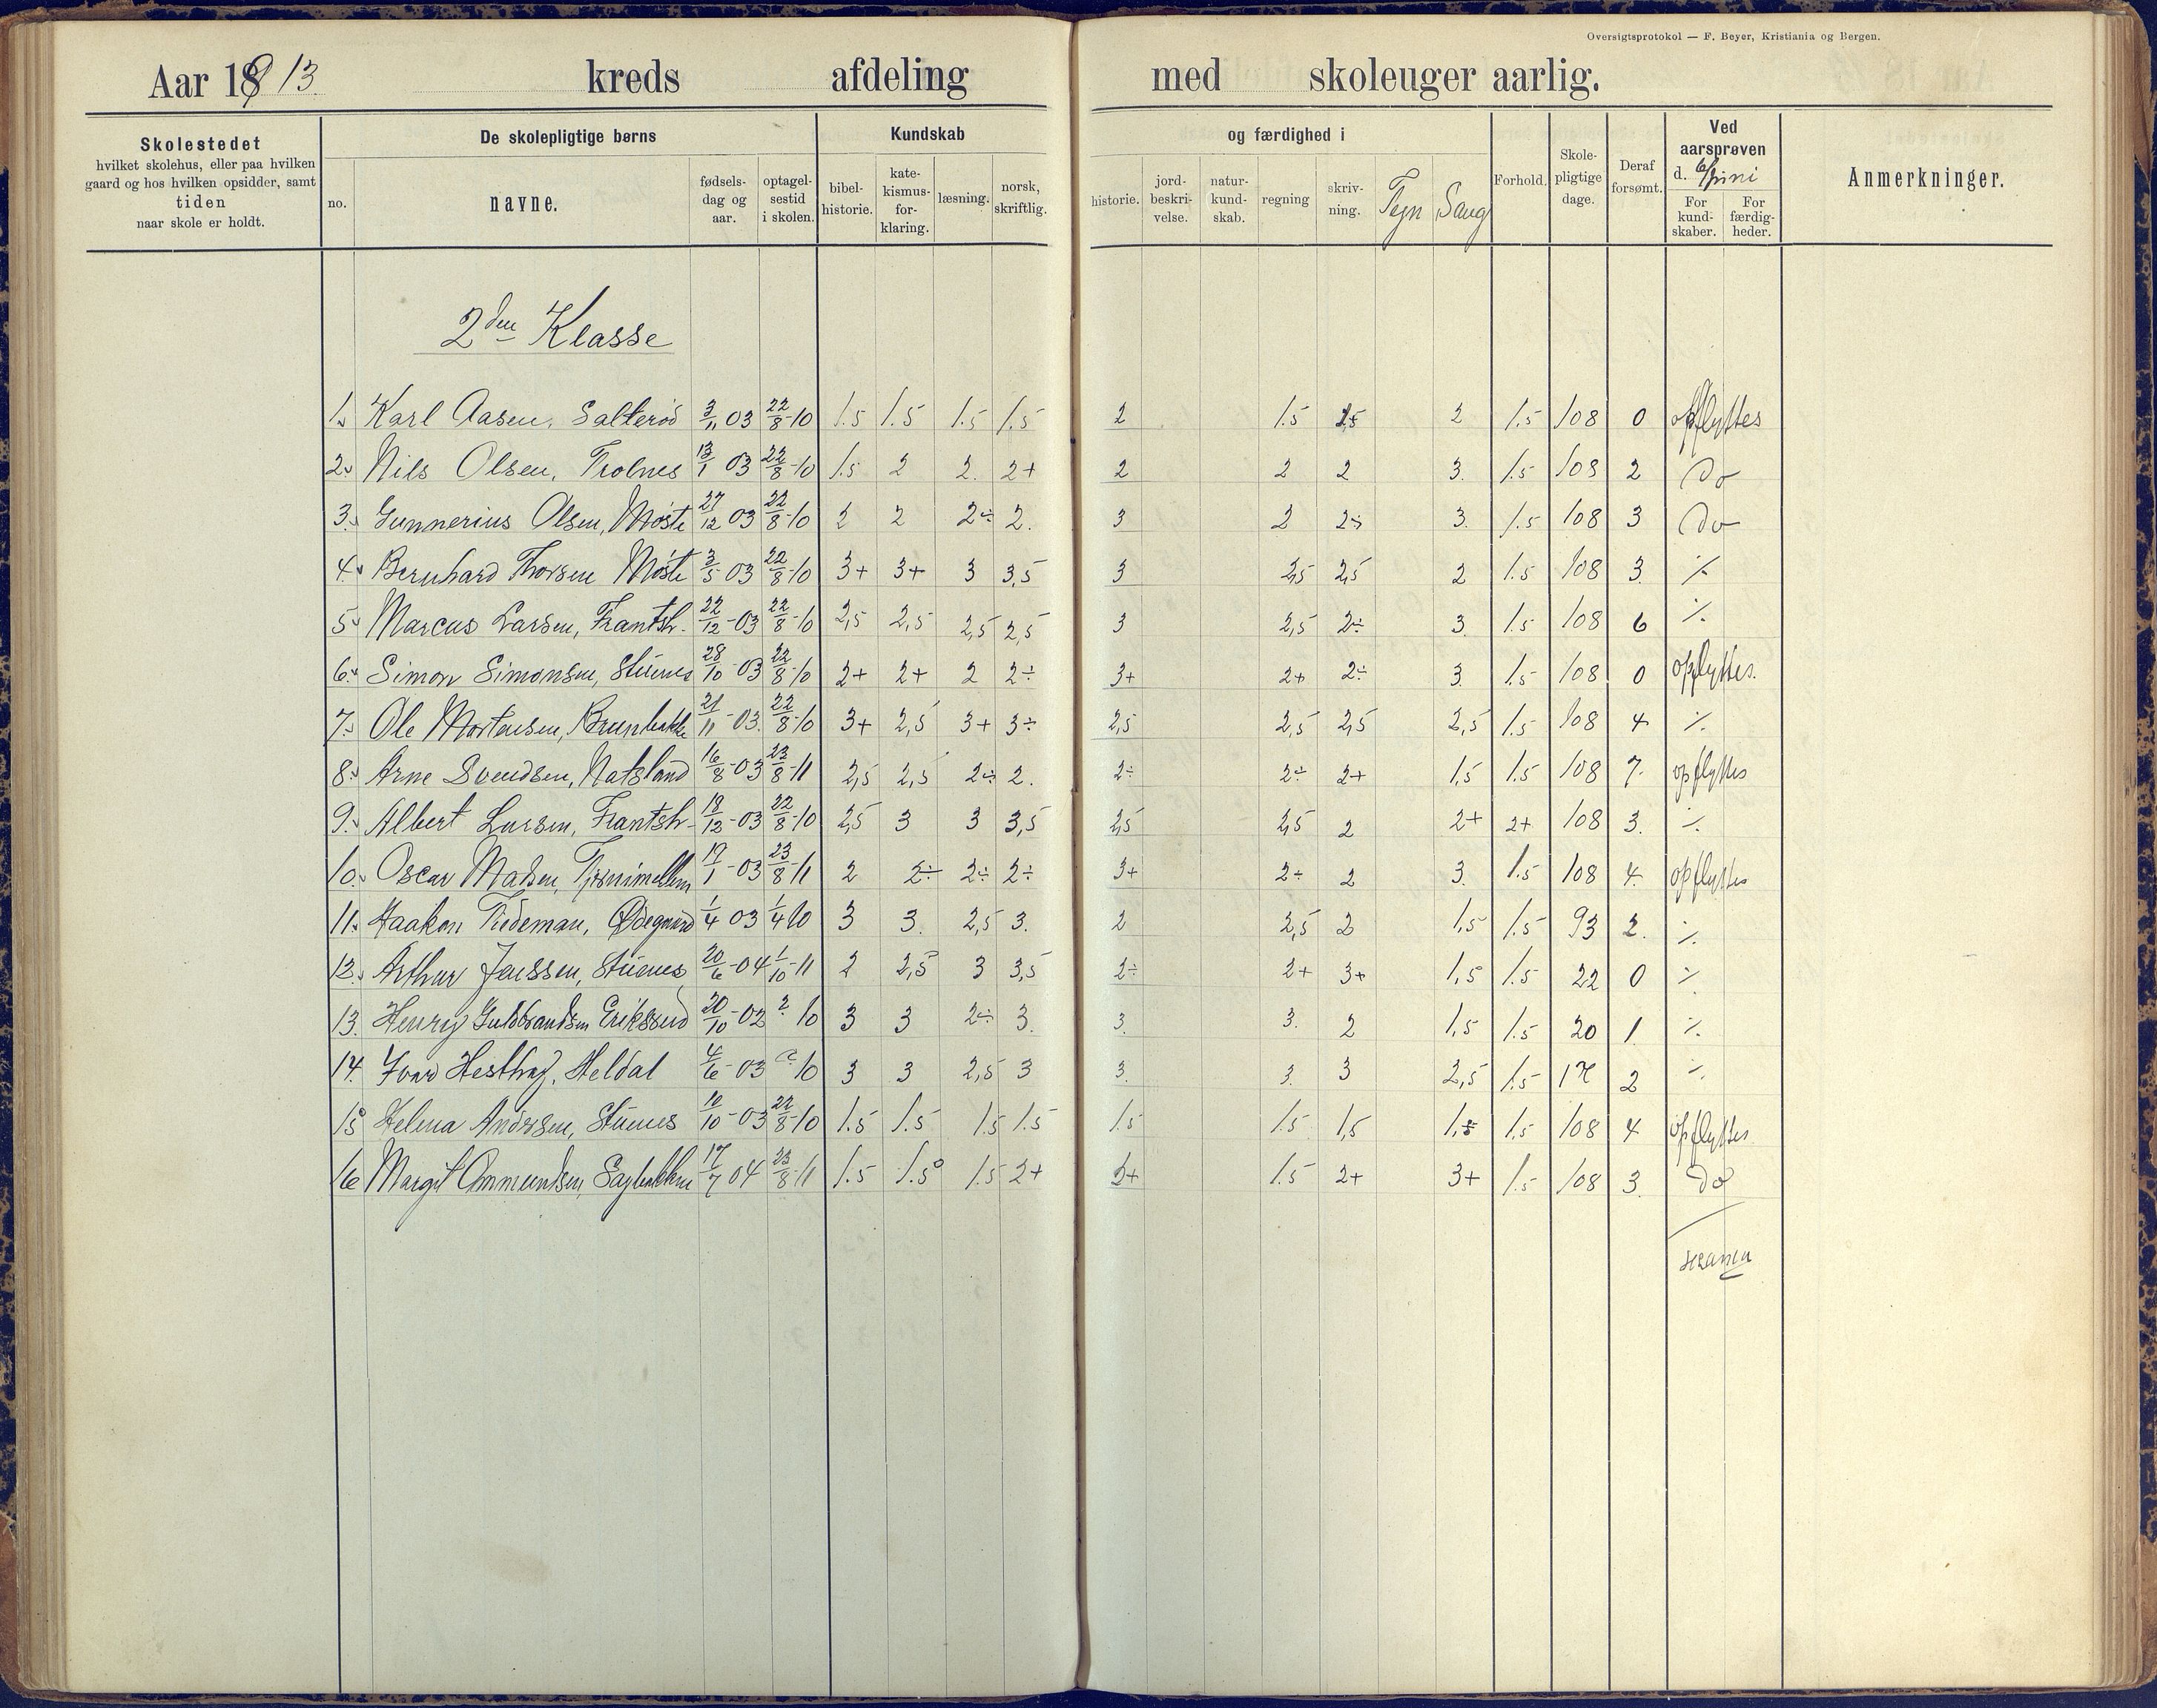 Oversigtsprotokol — F. Beyer, Kristiania og Bergen.
Aar 1913. kreds afdeling med skoleuger aarlig.
Skolestedet
hvilket skolehus, eller paa hvilken
gaard og hos hvilken opsidder, samt
tiden
naar skole er holdt.
De skolepligtige børns
no. navne. fødsels-dag og aar. optagel-sestid i skolen.
Kundskab og færdighed i
bibel-historie. kate-kismus-for-klaring. læsning. norsk, skriftlig. historie. jord-beskri-velse. natur-kund-skab. regning skriv-ning. Tegn Sang
Forhold. Skole-pligtige dage. Deraf forsømt.
Ved aarsprøven d. 6/juni
For kund-skaber. For færdig-heder.
Anmerkninger.
2den Klasse
1. Karl Aasen, Salterød 3/11 03 22/8-10 1.5 1.5 1.5 1.5 2 1.5 1.5 2 1.5 108 0 opflyttes
2. Nils Olsen, Trolnes 13/1 03 22/8-10 1.5 2 2. 2+ 2 2 2 3. 1.5 108 2 do
3. Gunnerius Olsen, Møste 27/12 03 22/8-10 2 2 2÷ 2. 3 2 2÷ 3. 1.5 108 3 do
4. Bernhard Thorsen Møste 3/5 03 22/8-10 3+ 3+ 3 3,5 3 2,5 2,5 2 1.5 108 3. ./.
5. Marcus Larsen, Frantsh. 22/12-03 22/8-10 2,5 2,5 2,5 2,5 3 2,5 2÷ 3. 1.5 108 6 ./.
6. Simon Simonsen, Stuenes 28/10-03 22/8-10 2+ 2+ 2 2÷ 3+ 2+ 2÷ 3. 1.5 108 0 opflyttes.
7. Ole Mortensen, Brunbakke 21/11-03. 22/8-10 3+ 2,5 3+ 3÷ 2,5 2,5 2,5 2,5 1.5 108 4 ./.
8. Arne Svendsen, Natsland 16/8-03 23/8-11 2,5 2,5 2÷ 2. 2÷ 2÷ 2+ 1,5 1.5 108 7. opflyttes
9. Albert Larsen, Frantsh. 18/12-03 22/8-10 2,5 3 3 3,5 2,5 2,5 2 2+ 2+ 108 3. ./.
10. Oscar Madsen, 17/1-03 23/8-11 2 2÷ 2÷ 2÷ 3+ 2÷ 2 3. 1.5 108 4. opflyttes
11. Haakon Tiedeman, Ødegaard 1/4 03 1/4 10 3 3. 2,5 3. 2 2,5 2 1,5 1.5 93 2. ./.
12. Arthur Jenssen, Stuenes 20/6-04 1/10-11 2 2,5 3 3,5 2÷ 2+ 3+ 1,5 1.5 22 0 ./.
13. Henry Guldbrandsen Erikssund 20/10-02 ? 10 3 3 2÷ 3. 3. 3. 2 1,5 1.5 20 1 ./.
14. Ivar Hesthag, Heldal 4/6-03 ? 10 3 3 2,5 3 3. 3. 3 2,5 1.5 17 2 ./.
15 Helma Andersen, Stuenes 10/10-03 22/8-10 1.5 1.5 1.5 1.5 1.5 1.5 1,5 1,5 1.5 108 4 opflyttes
16 Margit Ommundsen, Sagbakken 17/7 04 23/8-11 1.5 1.5 1.5 2+ 2+ 1.5 2+ 3+ 1.5 108 3. do